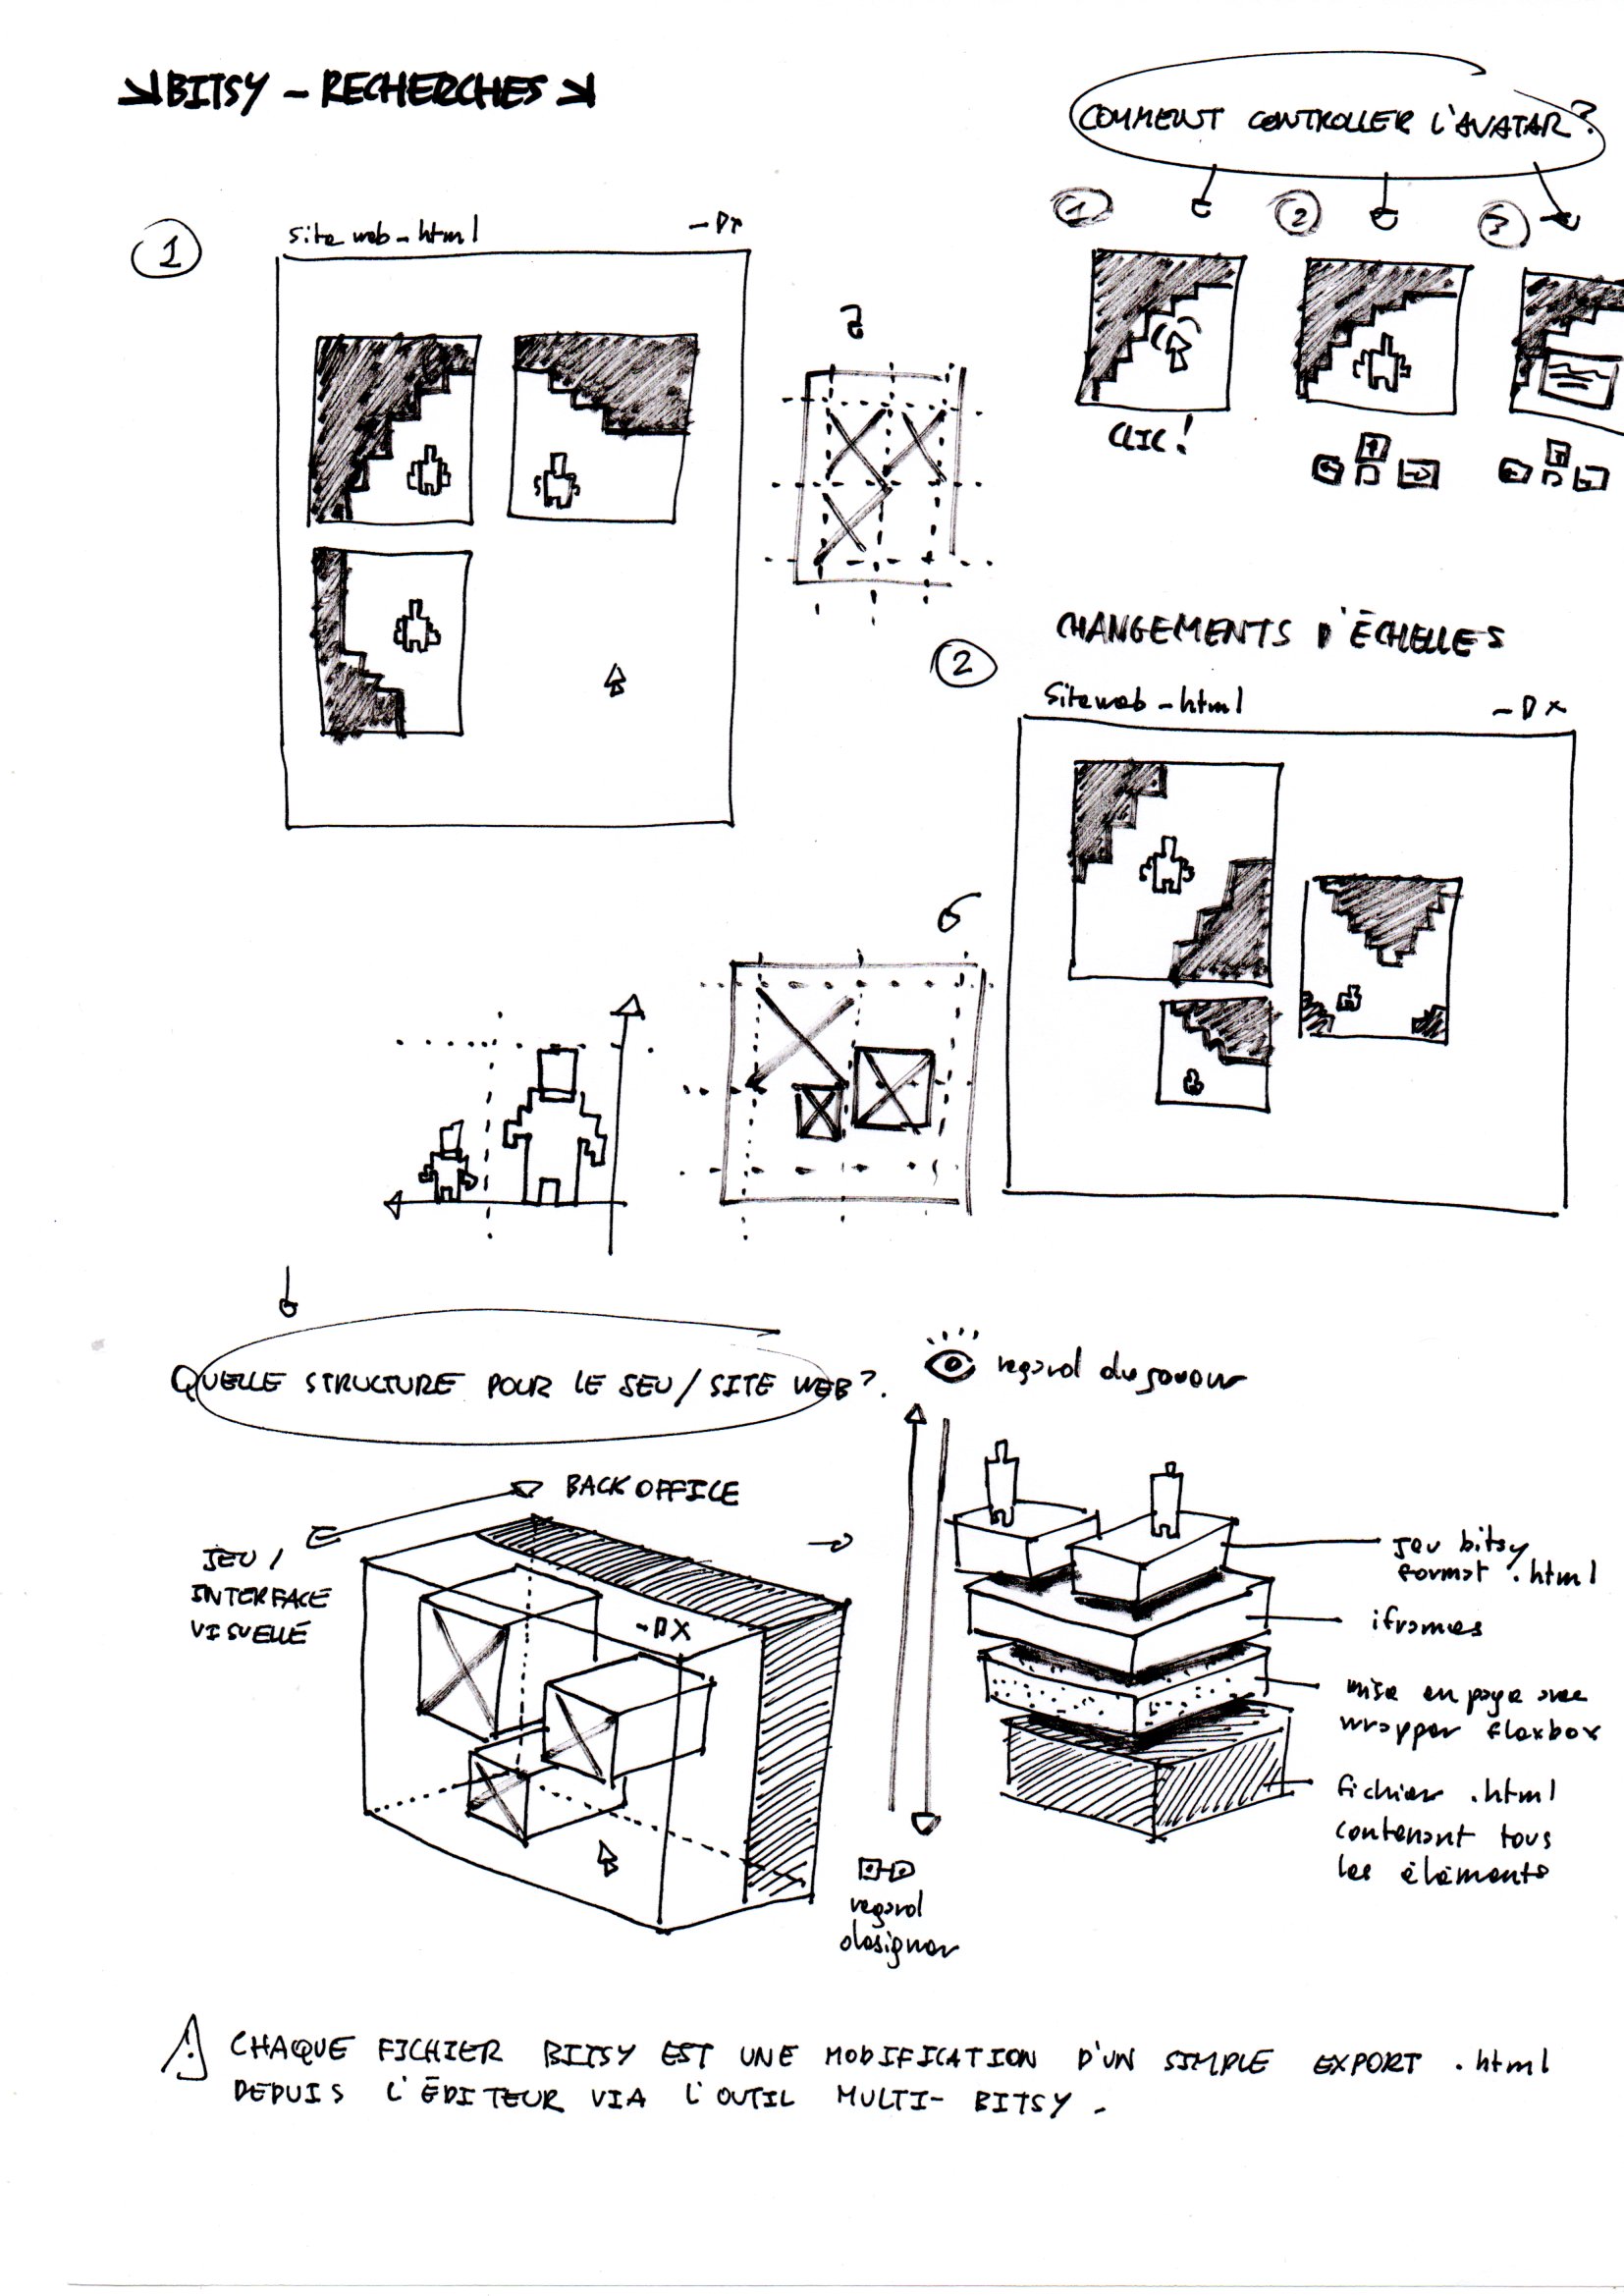 BITSY - RECHERCHES
COMMENT CONTROLLER L'AVATAR?
1
site web - html
1
2
3
CLIC!
CHANGEMENTS D'ÉCHELLES
2
Site web - html
QUELLE STRUCTURE POUR LE JEU / SITE WEB?.
regard du joueur
BACK OFFICE
JEU /
INTERFACE
VISUELLE
jeu bitsy
format .html
iframes
mise en page avec
wrapper flexbox
fichier .html
contenant tous
les éléments
regard
designer
CHAQUE FICHIER BITSY EST UNE MODIFICATION D'UN SIMPLE EXPORT .html
DEPUIS L'ÉDITEUR VIA L'OUTIL MULTI-BITSY.